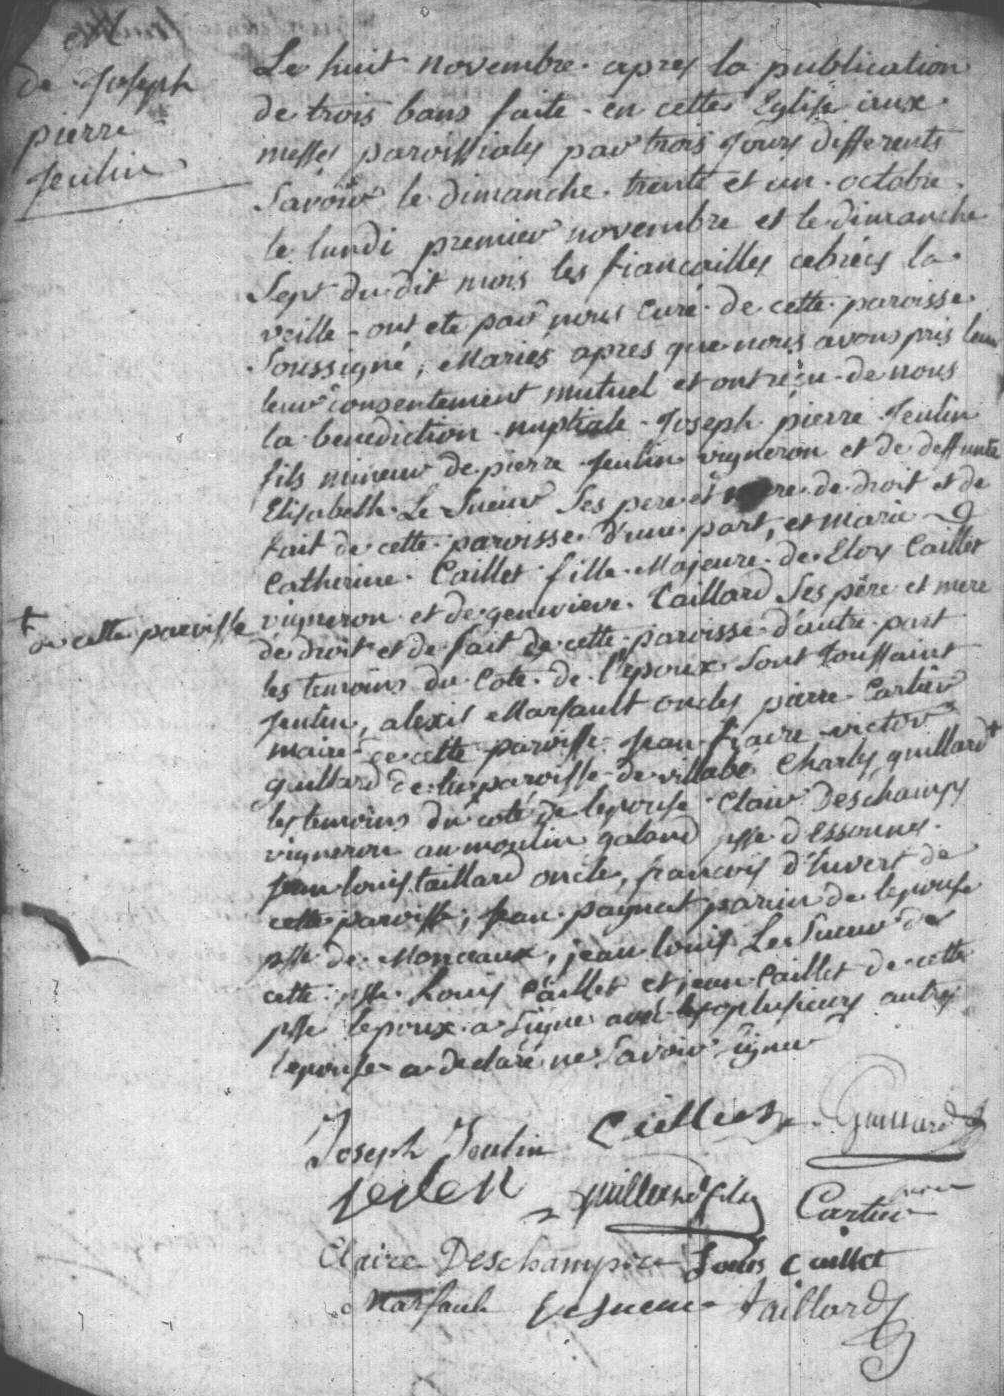 de Joseph
pierre
Jeulin
Le huit novembre apres la publication
de trois bans faite en cette Eglise aux
messes paroissiales par trois Jours differents
Savoir le dimanche trente et un octobre
le lundi premier novembre et le dimanche
Sept du dit mois les fiancailles cebrées la
veille ont ete par nous Curé de cette paroisse
Soussigné, Mariés apres que nous avons pris leur
leur consentement mutuel et ont reçu de nous
la benediction nuptiale Joseph pierre Jeulin
fils mineur de pierre Jeulin vigneron et de deffunte
Elisabeth Le Sueur Ses pere et mere de droit et de
fait de cette paroisse d'une part, et marie
Catherine Caillet fille Majeure de Eloy Caillet
vigneron et de genevieve Taillard Ses père et mere
de droit et de fait de cette paroisse d'autre part
les temoins du Coté de l'epoux Sont Toussaint
Jeulin, alexis Marsault oncles pierre Cartier
maire de cette paroisse Jean fiacre victor
guillard de la paroisse de villabé Charles guillard +
+ de cette paroisse
les temoins du coté de lepouse Clair Deschamps
vigneron au moulin galand psse d'Essonnes
Jean louis taillard oncle, francois d'huvert de
cette paroisse, Jean paynat parrin de lepouse
psse de Monceaux, jean louis Le Sueur de
cette psse Louis Caillet et jean Caillet de cette
psse lepoux a Signé avec plusieurs autres
lepouse a declaré ne Savoir Signer
Joseph Joulin Cielliest Guillard
jeulen guillard fils Cartier
Claire Deschamps Louis Caillet
Marsault Lesueur taillard